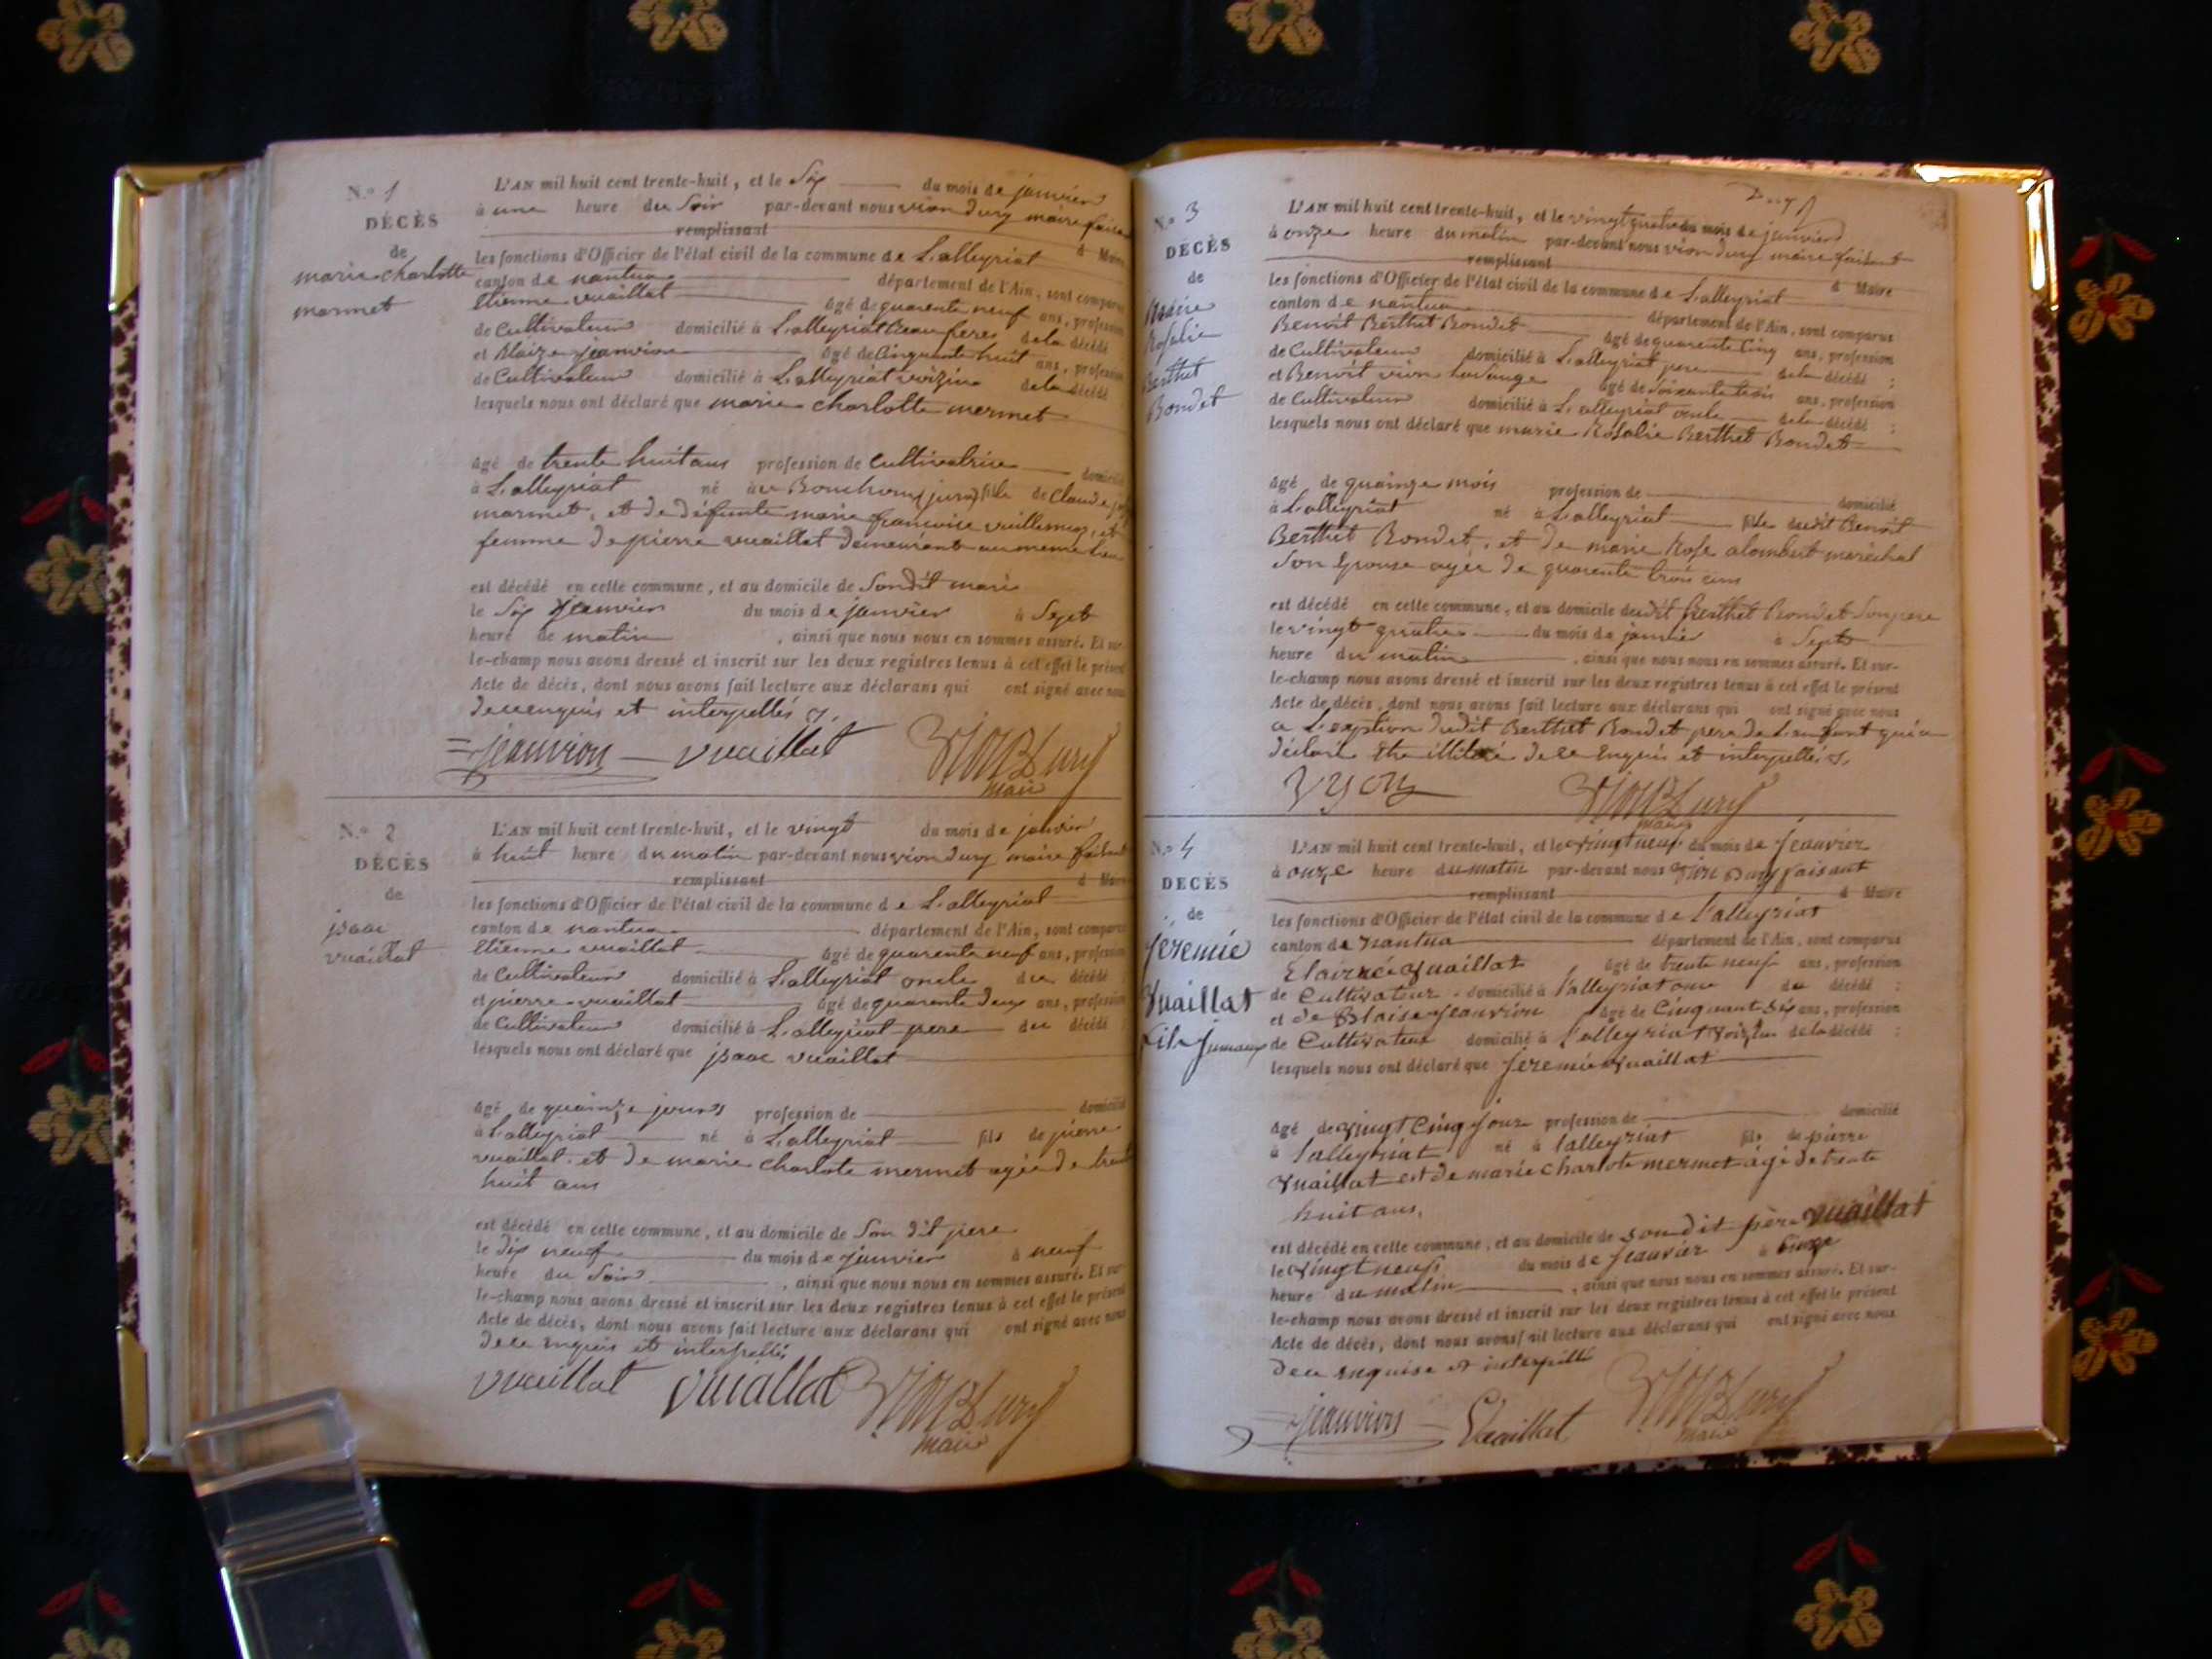 N.º 1
DÉCÈS
de
marie charlotte
marmet
L'AN mil huit cent trente-huit, et le Six du mois de janvier
à une heure du Soir par-devant nous vion Dury maire faisan
remplissant d Maire
les fonctions d'Officier de l'état civil de la commune de L'alleyriat
canton de nantua département de l'Ain, sont comparus
Etienne vuaillat âgé de quarente neuf ans, profession
de Cultivateur domicilié à L'alleyriat beau frere de la décédé
et Blaize jeanvion âgé de Cinquante huit ans, profession
de Cultivateur domicilié à L'alleyriat voizin de la décédé
lesquels nous ont déclaré que marie charlotte mermet
âgé de trente huit ans profession de Cultivatrice domicilié
à L'alleyriat né au (jura) fille de Claude
marmet, et de défunte marie francoise vuillermoz, et
femme de pierre vuaillat demeurant au meme lieu
est décédé en cette commune, et au domicile de Sondit marie
le Six Jeanvier du mois de janvier à Sept
heure de matin, ainsi que nous nous en sommes assuré. Et sur-
le-champ nous avons dressé et inscrit sur les deux registres tenus à cet effet le présent
Acte de décès, dont nous avons fait lecture aux déclarans qui ont signé avec nous
de ce enquis et interpellés
jeanvion vuaillat VION Dury
maire
N.º 2
DÉCÈS
de
isaac
vuaillat
L'AN mil huit cent trente-huit, et le vingt du mois de janvier
à huit heure du matin par-devant nous vion Dury maire faisant
remplissant d Maire
les fonctions d'Officier de l'état civil de la commune de L'alleyriat
canton de nantua département de l'Ain, sont comparus
Etienne vuaillat âgé de quarente neuf ans, profession
de Cultivateur domicilié à L'alleyriat oncle du décédé
et pierre vuaillat âgé de quarente deux ans, profession
de Cultivateur domicilié à L'alleyriat pere du décédé
lesquels nous ont déclaré que isaac vuaillat
âgé de quainze jours profession de domicilié
à L'alleyriat né à L'alleyriat fils de pierre
vuaillat et de marie charlote mermet agée de trente
huit ans
est décédé en cette commune, et au domicile de Son dit pere
le dix neuf du mois de janvier à neuf
heure du Soir, ainsi que nous nous en sommes assuré. Et sur-
le-champ nous avons dressé et inscrit sur les deux registres tenus à cet effet le présent
Acte de décès, dont nous avons fait lecture aux déclarans qui ont signé avec nous
de ce enquis et interpellés
vuaillat vuaillat VION Dury
maire
N.º 3
DÉCÈS
de
Marie
Rosalie
Berthet
Bondet
L'AN mil huit cent trente-huit, et le vingt quatre du mois de janvier
à onze heure du matin par-devant nous vion Dury maire faisant
remplissant d Maire
les fonctions d'Officier de l'état civil de la commune de L'alleyriat
canton de nantua département de l'Ain, sont comparus
Benoit Berthet Bondet âgé de quarente Cinq ans, profession
de Cultivateur domicilié à L'alleyriat pere de la décédé ;
et Benoit vion âgé de Soixante trois ans, profession
de Cultivateur domicilié à L'alleyriat oncle de la décédé ;
lesquels nous ont déclaré que marie Rosalie Berthet Bondet
âgé de quainze mois profession de domicilié
à L'alleyriat né à L'alleyriat fille dudit Benoit
Berthet Bondet, et de marie Rose alombert maréchal
Son Epouse agée de quarente trois ans
est décédé en cette commune, et au domicile dudit Berthet Bondet Son pere
le vingt quatre du mois de janvier à Sept
heure du matin, ainsi que nous nous en sommes assuré. Et sur-
le-champ nous avons dressé et inscrit sur les deux registres tenus à cet effet le présent
Acte de décès, dont nous avons fait lecture aux déclarans qui ont signé avec nous
a L'exption dudit Berthet Bondet pere de L'enfant qui a
déclaré de ce Enquis et interpellés
vyon VION Dury
maire
N.º 4
DÉCÈS
de
Jéremie
Vuaillat
fils Jumaux
L'AN mil huit cent trente-huit, et le vingt neuf du mois de Jeanvier
à onze heure du matin par-devant nous Vion Dury faisant
remplissant d Maire
les fonctions d'Officier de l'état civil de la commune de l'alleyriat
canton de nantua département de l'Ain, sont comparus
Vuaillat âgé de trente neuf ans, profession
de Cultivateur domicilié à l'alleyriat du décédé ;
et de Blaise Jeanvion âgé de Cinquant Six ans, profession
de Cultivateur domicilié à l'alleyriat Voizin de la décédé ;
lesquels nous ont déclaré que Jéremie Vuaillat
âgé de Vingt Cinq Jour profession de domicilié
à l'alleyriat né à l'alleyriat fils de pierre
Vuaillat et de marie charlote mermet âgé de trente
huit ans,
est décédé en cette commune, et au domicile de son dit père vuaillat
le Vingt neuf du mois de Jeanvier à
heure du matin, ainsi que nous nous en sommes assuré. Et sur-
le-champ nous avons dressé et inscrit sur les deux registres tenus à cet effet le présent
Acte de décès, dont nous avons fait lecture aux déclarans qui ont signé avec nous
de ce enquise et interpellé
jeanvion Vuaillat VION Dury
maire